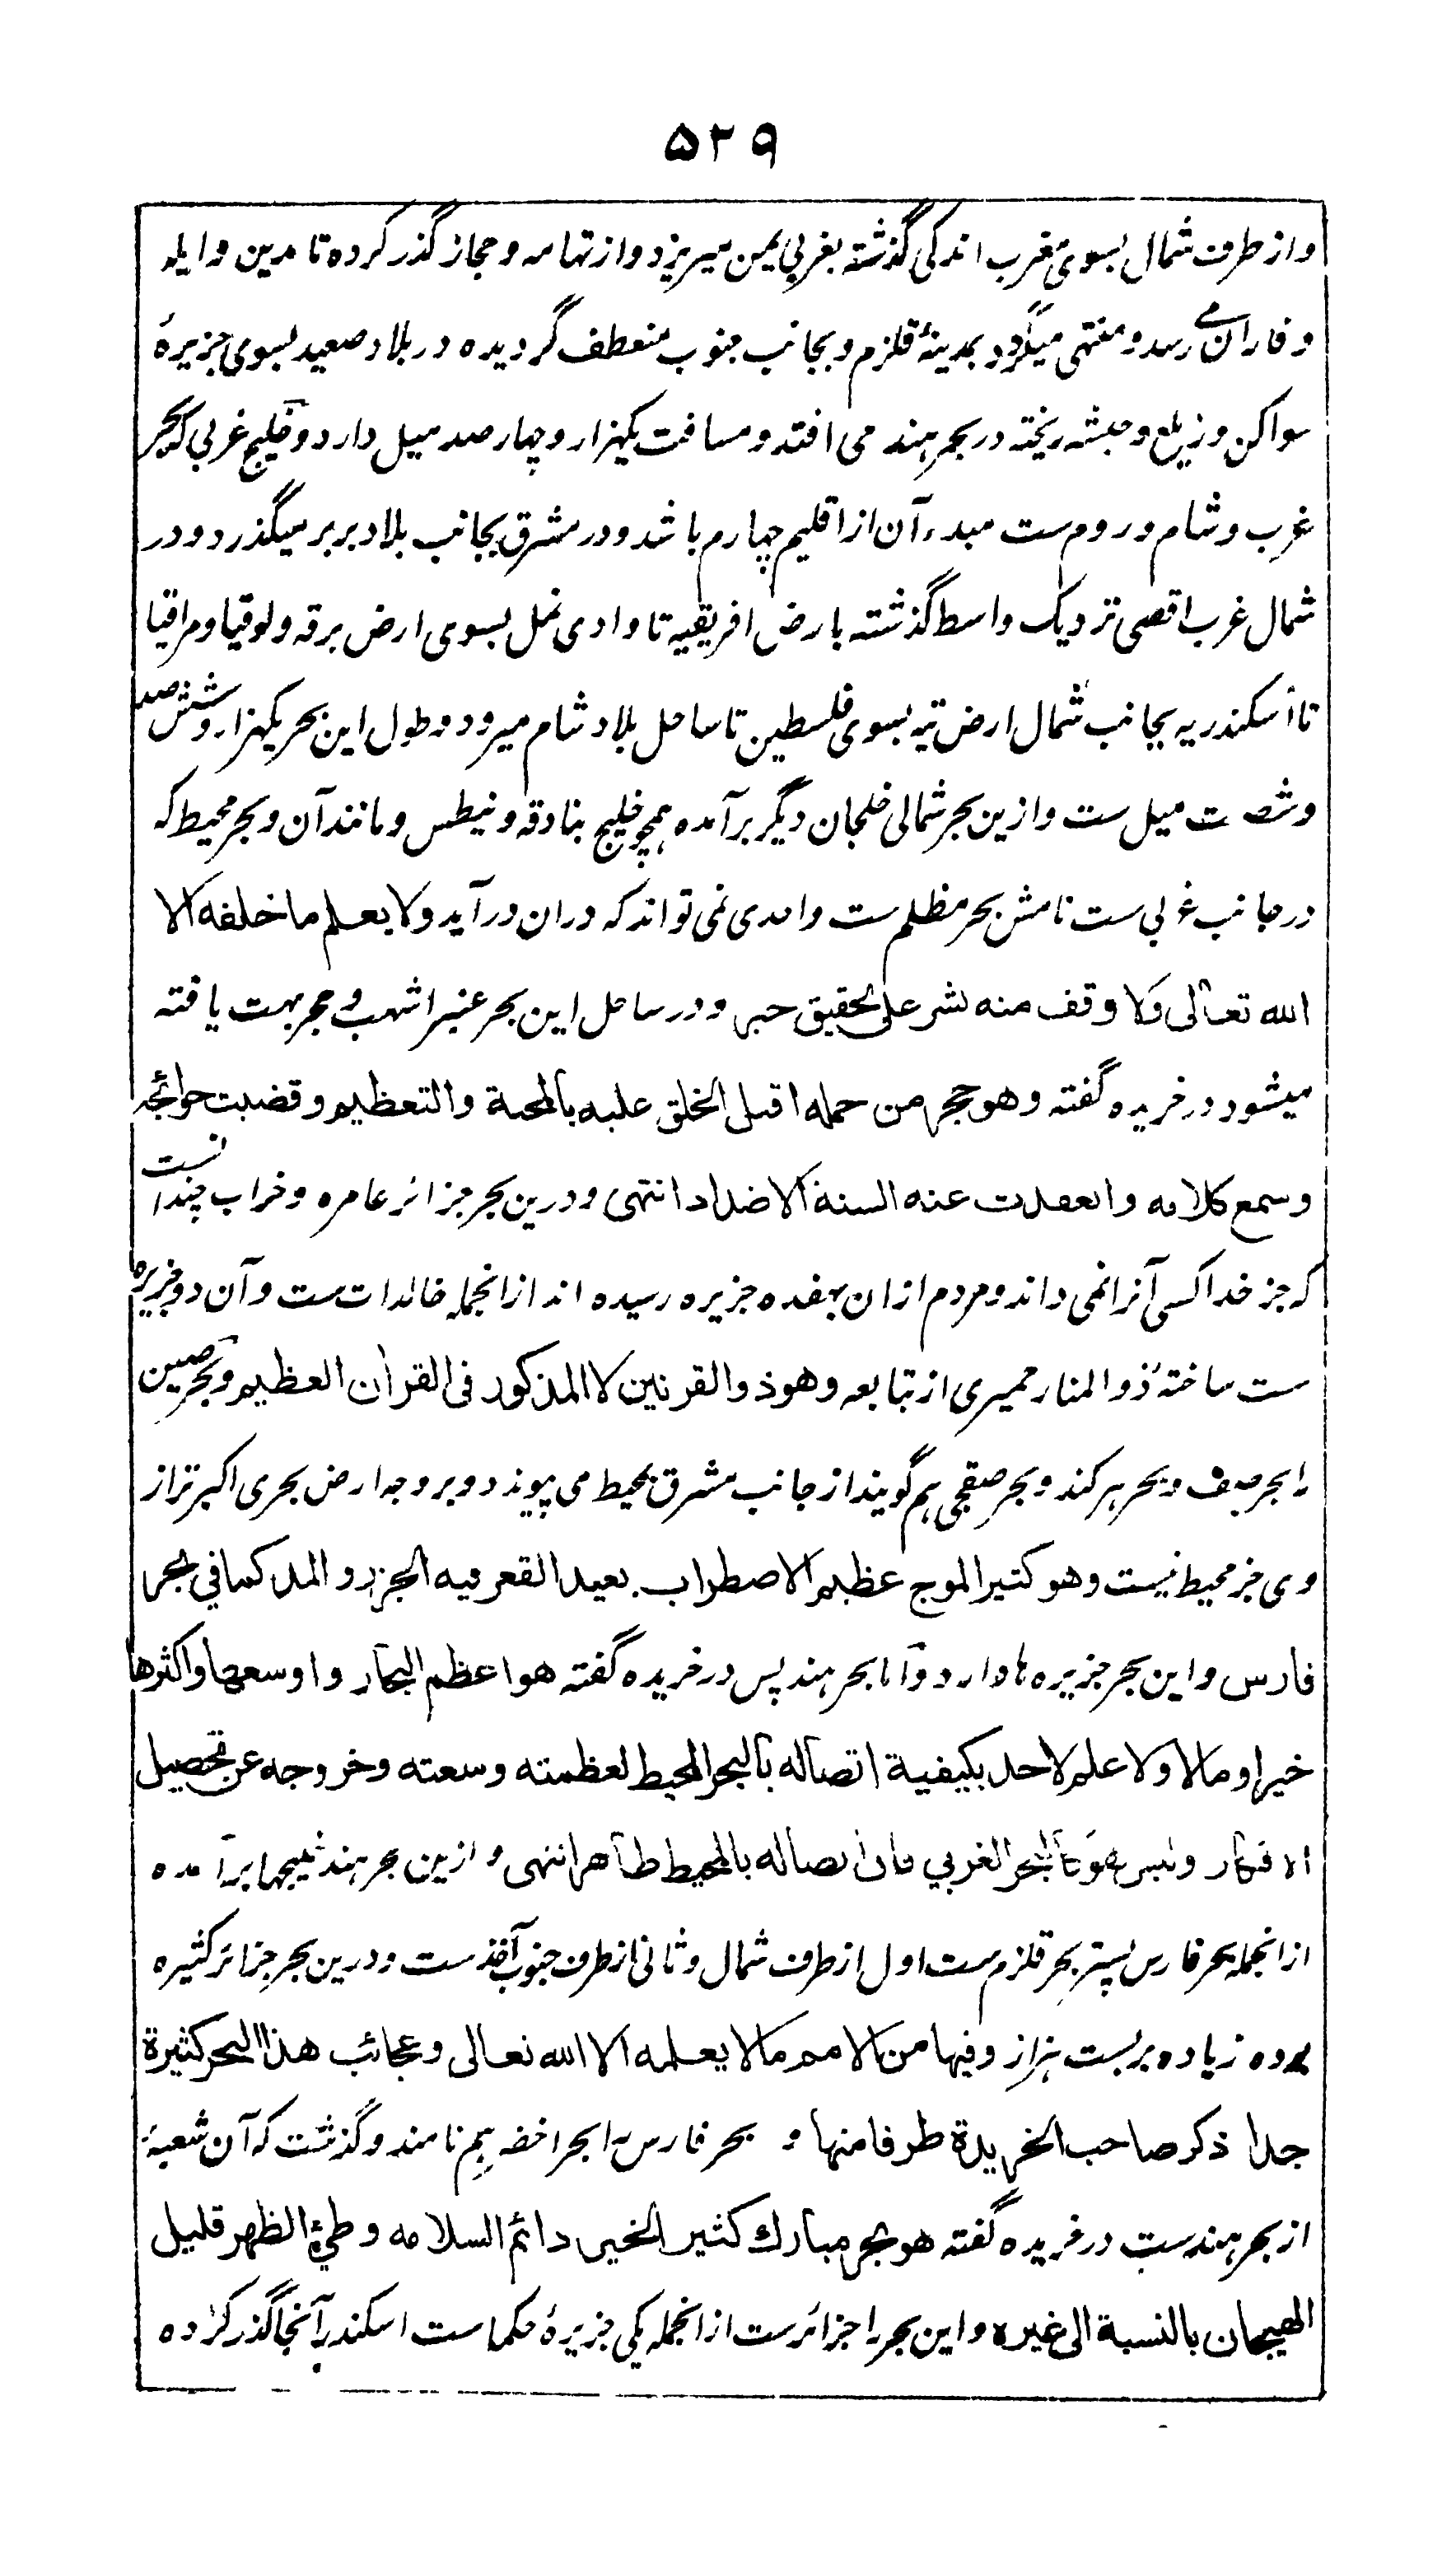 ۵۲۹
واز طرف شمال بسوی مغرب اندکی گذشته بغربی یمن میریزد واز تهامه وحجاز گذر کرده تا مدین وایله
وفاران می رسد ومنتهی میگردد بمدینهٔ قلزم وبجانب جنوب منعطف گردیده در بلاد صعید بسوی جزیرهٔ
سواکن وزیلع وحبشه ریخته در بحر هند می افتد ومسافت یکهزار وچهار صد میل دارد وخلیج غربی که بحر
غرب وشام وروم ست مبدء آن از اقلیم چهارم باشد ودر مشرق بجانب بلاد بربر میگذرد ودر
شمال غرب اقصی نزدیک واسط گذشته بارض افریقیه تا وادی نمل بسوی ارض برقه ولوقیا ومراقیا
تا اسکندریه بجانب شمال ارض تیه بسوی فلسطین تا ساحل بلاد شام میرود وطول این بحر یکهزار وشش صد
وشصت میل ست وازین بحر شمالی خلجان دیگر برآمده همچو خلیج بنادقه ونیطس ومانند آن وبحر محیط که
در جانب غربی ست نامش بحر مظلم ست واحدی نمی تواند که دران درآید ولا یعلم ما خلفه الا
الله تعالی ولا وقف منه بشر علی تحقیق خبر ودر ساحل این بحر عنبر اشهب وحجر بهت یافته
میشود در خریده گفته وهو حجر من حمله اقبل الخلق علیه بالمحبة والتعظیم وقضیت حوائجه
وسمع کلامه وانعقدت عنه السنة الاضداد انتهی ودرین بحر جزائر عامره وخراب چندانست
که جز خدا کسی آنرا نمی داند ومردم ازان بهفده جزیره رسیده اند ازانجمله خالدات ست وآن دو جزیره
ست ساختهٔ ذو المنار حمیری از تبابعه وهو ذو القرنین لا المذکور فی القرآن العظیم وبحر صین
را بحر صنف وبحر هرکند وبحر صیقی هم گویند از جانب مشرق بمحیط می پیوندد وبروجه ارض بحری اکبر تر از
وی جز محیط نیست وهو کثیر الموج عظیم الاضطراب بعید القعر فیه الجزر والمد کما فی بحر
فارس واین بحر جزیره ها دارد واما بحر هند پس در خریده گفته هو اعظم البحار واوسعها واکثرها
خیرا ومالا ولا علم لاحد بکیفیة اتصاله بالبحر المحیط لعظمته وسعته وخروجه عن تحصیل
الافکار ولیس هو کالبحر الغربي فان اتصاله بالمحیط ظاهر انتهی وازین بحر هند خلیجها برآمده
ازانجمله بحر فارس پستر بحر قلزم ست اول از طرف شمال وثانی از طرف جنوب آخذ ست ودرین بحر جزائر کثیره
بوده زیاده بر بست هزار وفیها من الامم ما لا یعلمه الا الله تعالی وعجائب هذا البحر کثیرة
جدا ذکر صاحب الخریدة طرفا منها و بحر فارس را بحر اخضر هم نامند وگذشت که آن شعبهٔ
از بحر هندست در خریده گفته هو بحر مبارك کثیر الخیر دائم السلامه وطيء الظهر قلیل
الهیجان بالنسبة الی غیره واین بحر را جزائرست ازانجمله یکی جزیرهٔ حکماست اسکندر بر آنجا گذر کرده